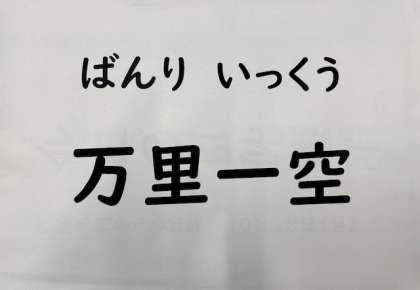 ばんり いっくう
万里一空